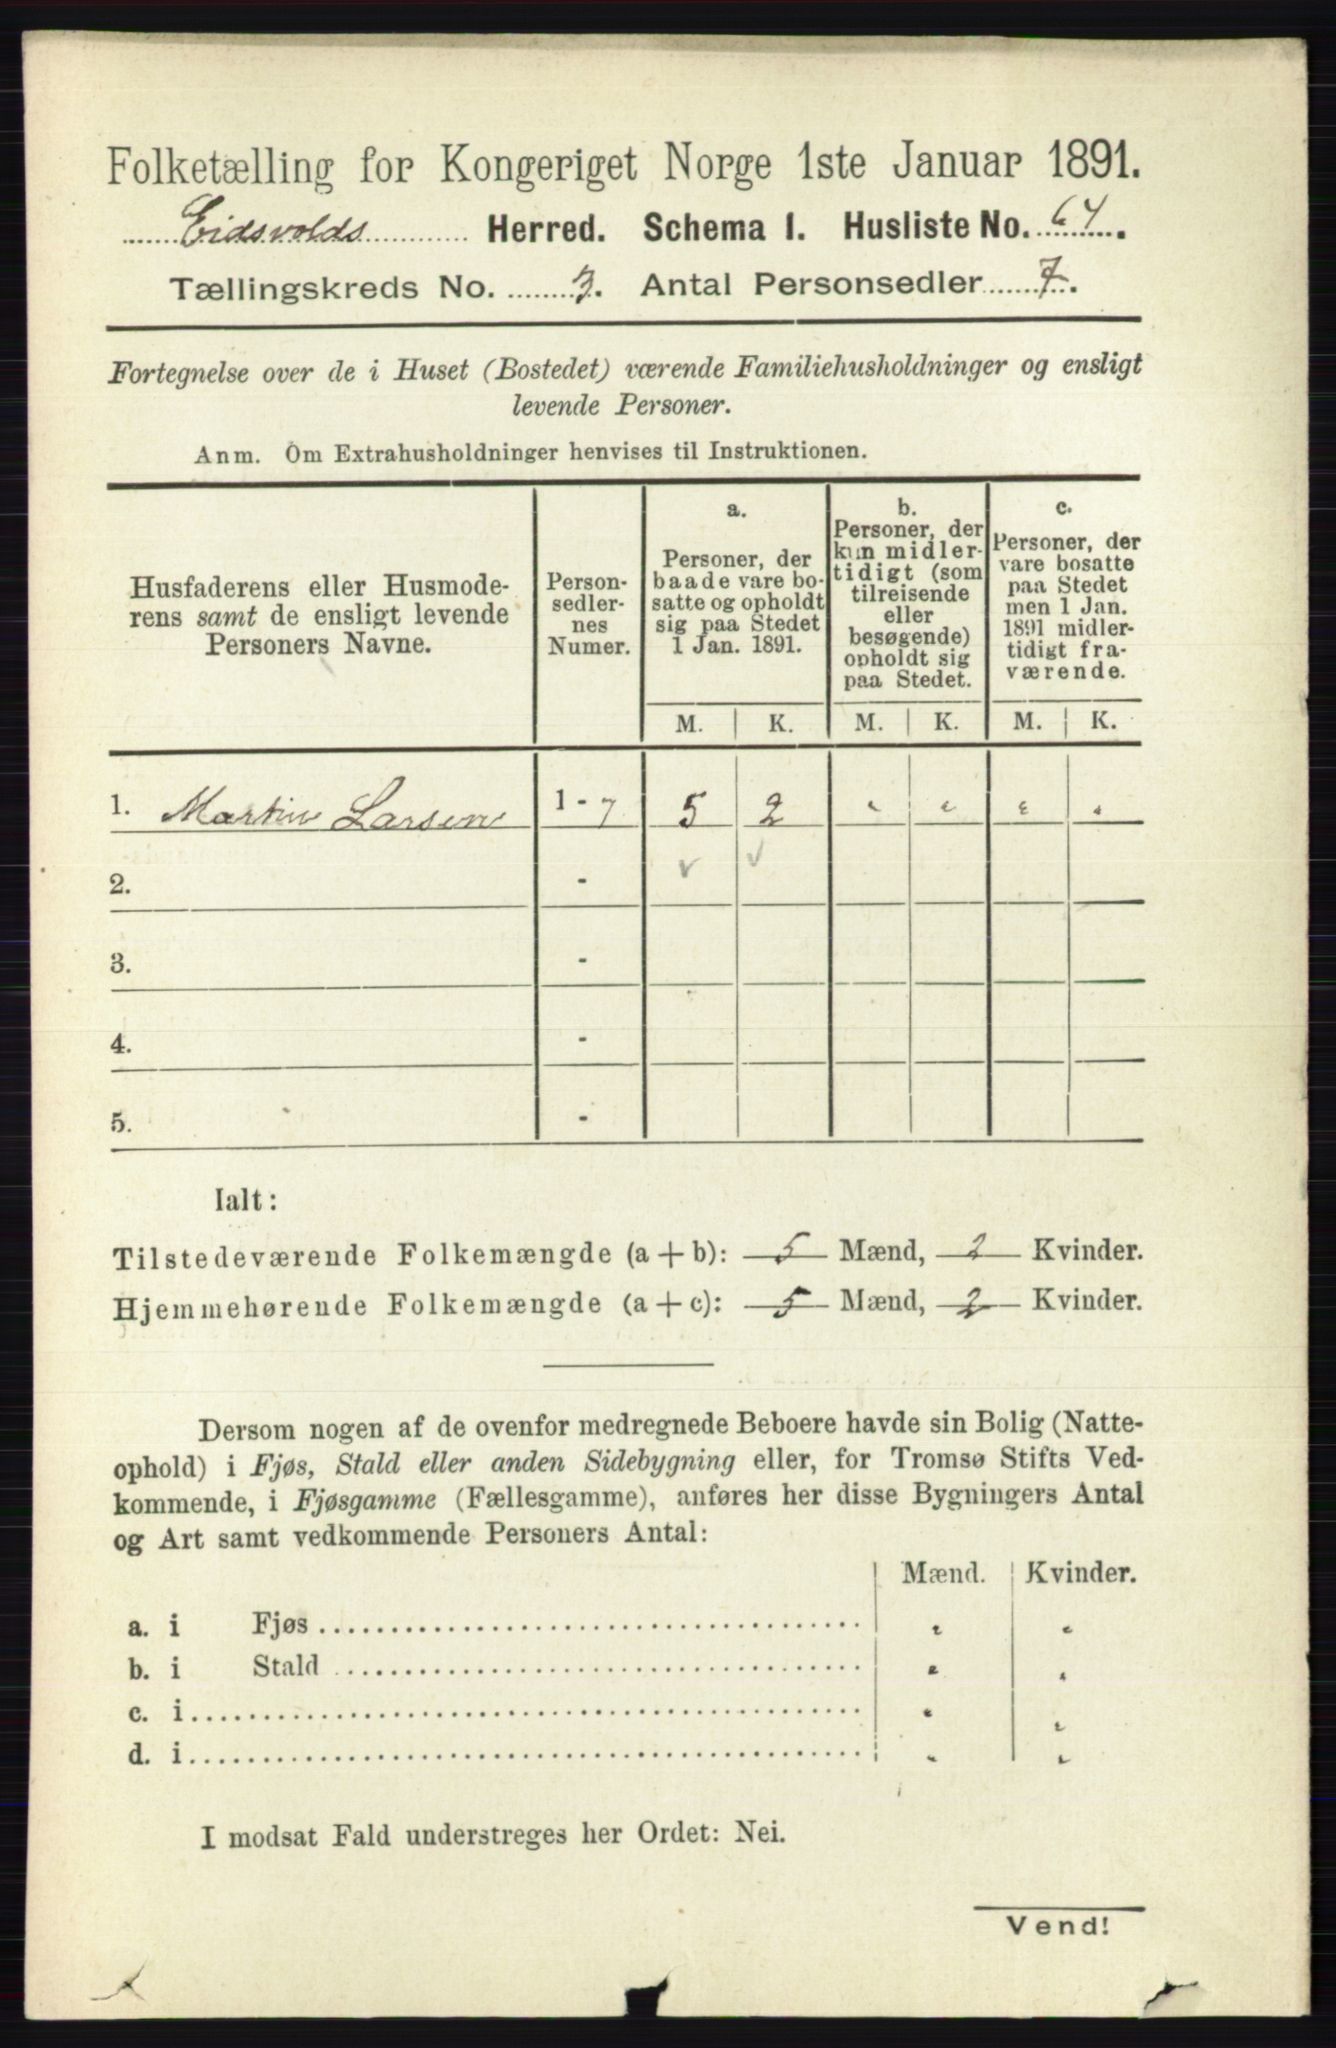 Folketælling for Kongeriget Norge 1ste Januar 1891.
Eidsvolds Herred. Schema I. Husliste No. 64.
Tællingskreds No. 3. Antal Personsedler 7.
Fortegnelse over de i Huset (Bostedet) værende Familiehusholdninger og ensligt
levende Personer.
Anm. Om Extrahusholdninger henvises til Instruktionen.
Husfaderens eller Husmode-
rens samt de ensligt levende
Personers Navne.
Person-
sedler-
nes
Numer.
a.
Personer, der
baade vare bo-
satte og opholdt
sig paa Stedet
1 Jan. 1891.
b.
Personer, der
kun midler-
tidigt (som
tilreisende
eller
besøgende)
opholdt sig
paa Stedet.
c.
Personer, der
vare bosatte
paa Stedet
men 1 Jan.
1891 midler-
tidigt fra-
værende.
M. K. M. K. M. K.
1. Martin Larsen 1 - 7 5 2 " " " "
2. -
3. -
4. -
5. -
Ialt:
Tilstedeværende Folkemængde (a + b): 5 Mænd, 2 Kvinder.
Hjemmehørende Folkemængde (a + c): 5 Mænd, 2 Kvinder.
Dersom nogen af de ovenfor medregnede Beboere havde sin Bolig (Natte-
ophold) i Fjøs, Stald eller anden Sidebygning eller, for Tromsø Stifts Ved-
kommende, i Fjøsgamme (Fællesgamme), anføres her disse Bygningers Antal
og Art samt vedkommende Personers Antal:
Mænd. Kvinder.
a. i Fjøs " "
b. i Stald " "
c. i " "
d. i " "
I modsat Fald understreges her Ordet: Nei.
Vend!